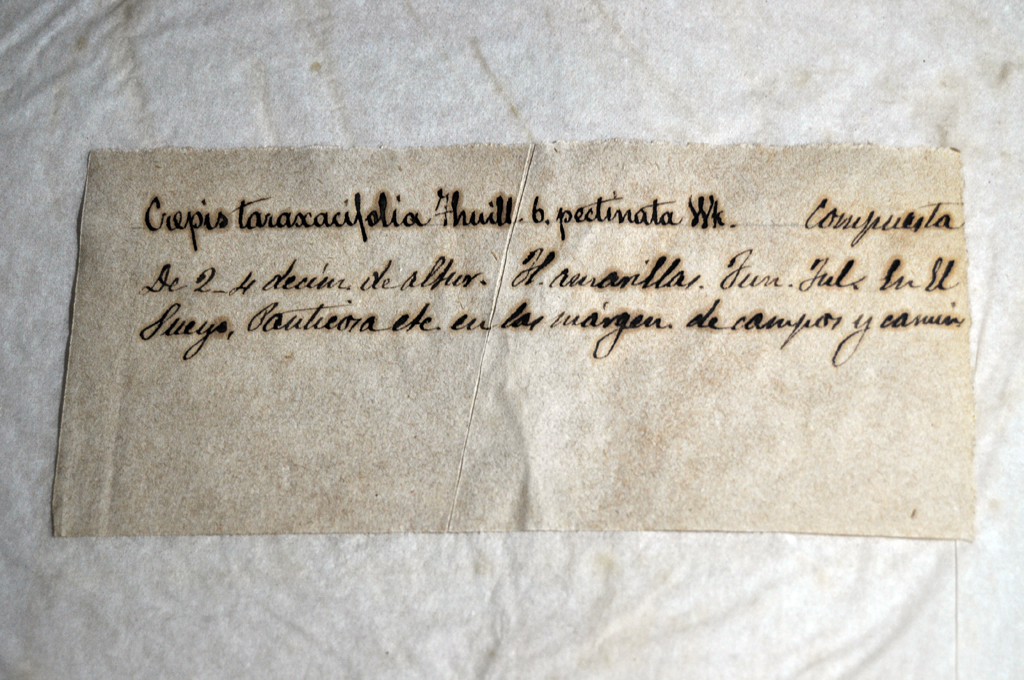 Crepis taraxacifolia Thuill. b. pectinata Wk. Compuesta
De 2-4 decím. de altur. Fl. amarillas. Jun. Jul. En El
Pueyo, Panticosa etc. en las márgen. de campos y camin